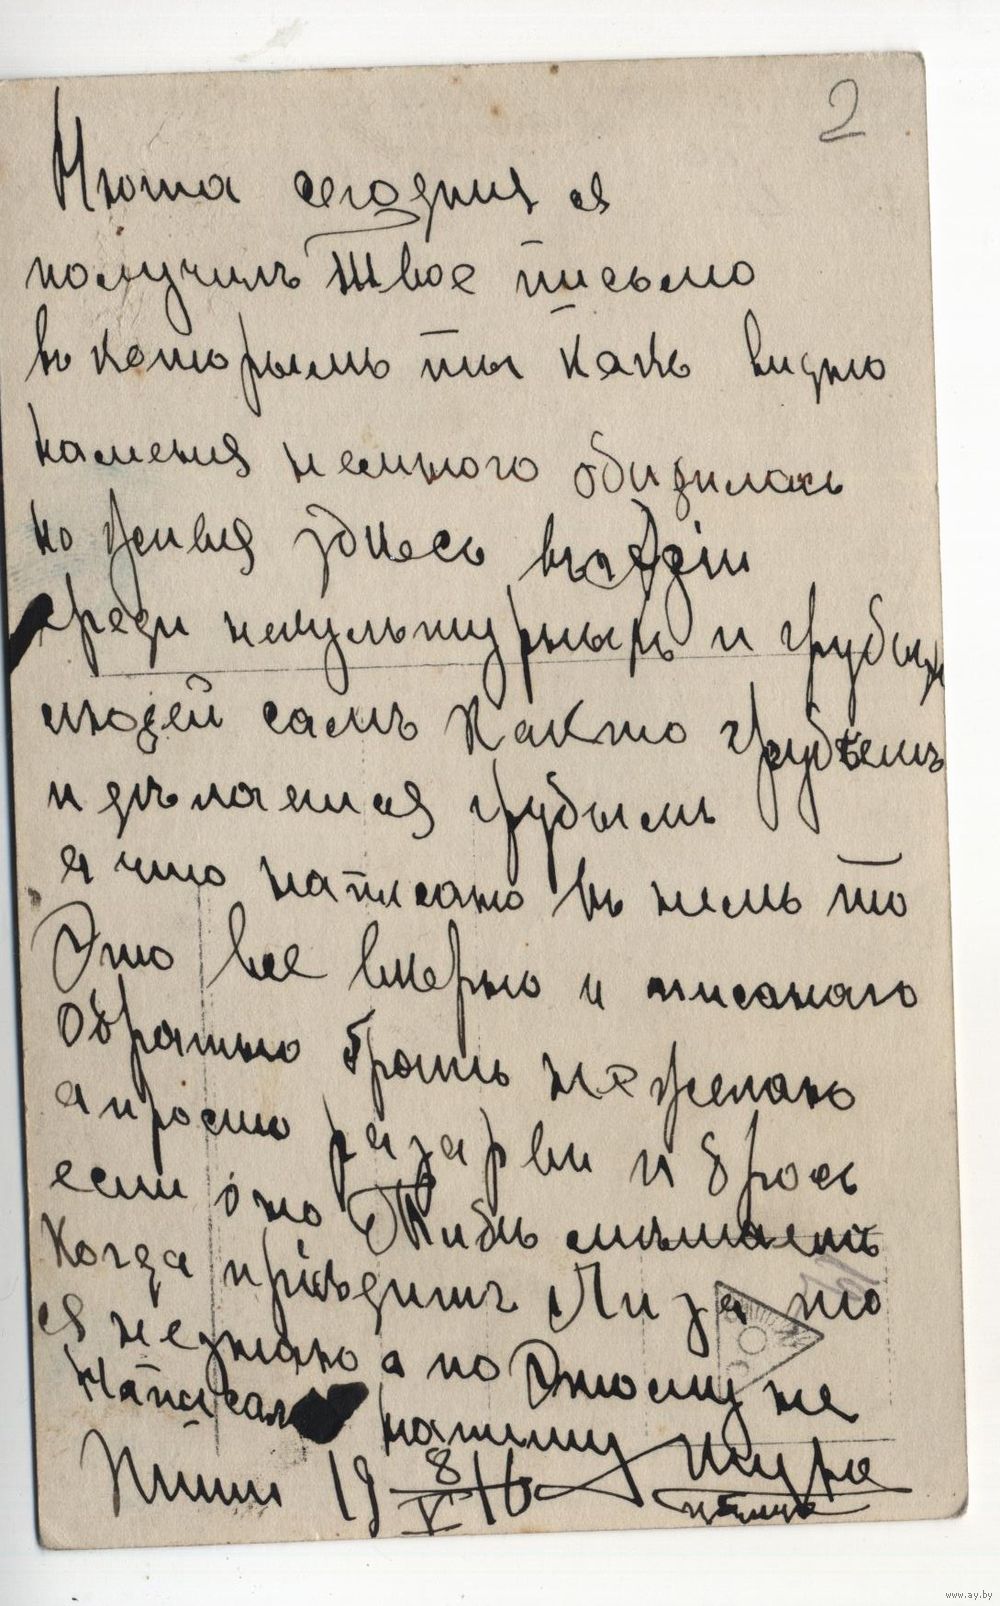 2
Нюта сегодня я
получилъ твое письмо
въ которымъ ты какъ видно
наменя немного обидилась
но живя здиесь
среди некультурныхъ и грубыхъ
людей самъ както грубѣемъ
и дѣлаешся грубымъ
а что написано въ немъ то
Это все вѣерно и писанаго
Обратно брать не желаю
а просто разарви и брось
если оно Тибѣ мѣшаетъ
Когда приѣдитъ Лиза то
я незнаю а по Этому не
Написалъ нашиму
Пиши 19 8/V 16 Шурѣ
www.ay.by